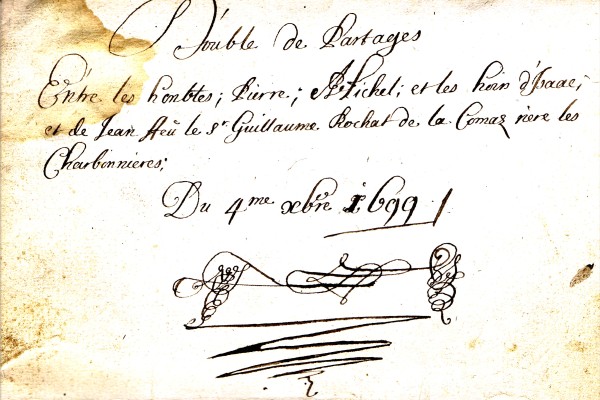 Double de Partages
Entre les honbles; Pierre; Michel; et les hoirs d'Isaac;
et de Jean ffeu le Sr Guillaume Rochat de la Cornaz rière les
Charbonnieres;
Du 4me xbre 1699